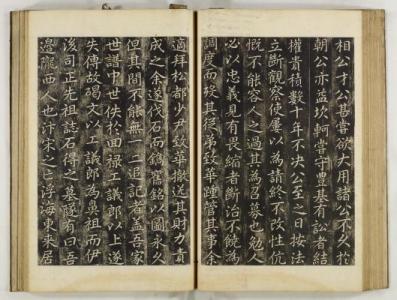 相公才公甚喜欲大用諸公不久於
朝公亦益坎軻嘗守豊基有訟者結
權貴積數十年不決公至之日按法
立斷觀察使屢以爲請終不改性伉
慨不能容人之過其爲召募也勉人
必以忠義見有畏縮者斷治不饒爲
調度而
其從弟致華踵管其事余
適拜松都少尹致華撤送其財力賁
成之余遂伐石而鐫
銘以圖永久
但其間不能無一二追記者蓋吾家
世譜中世佚於回祿工議郎以上遂
失傳故碣文以工議郎爲鼻祖而伊
後司正先祖誌石得之墓隧有曰吾
邊隴西人也汴宋之亡浮海東來居